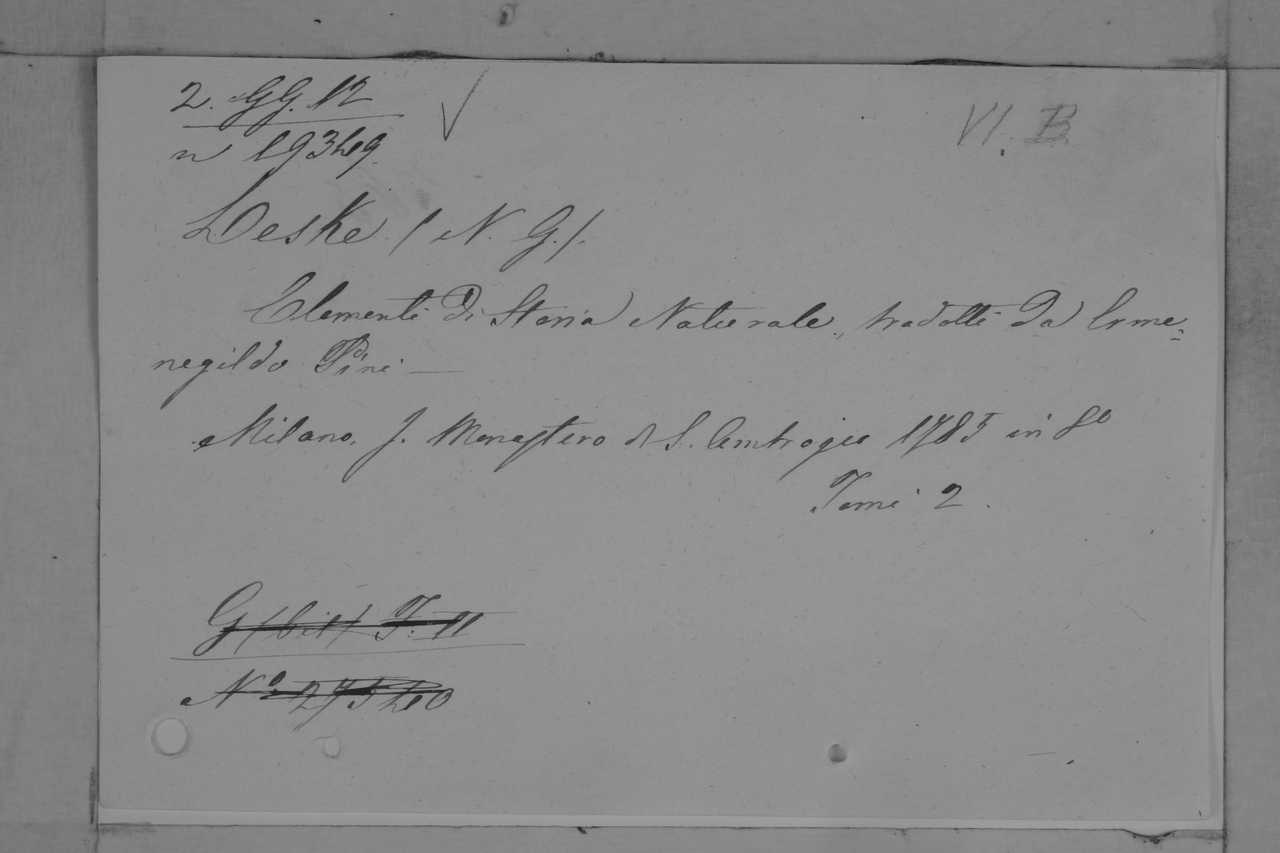 2. GG. 12 VI. B.
n 19349.
Leske (N. G.).
Elementi di Storia Naturale, tradotti da Erme=
negildo Pini —
Milano, J. Monastero di S. Ambrogio 1785 in 8º
Tomi 2.
G (bis) T. II
Nº 27540